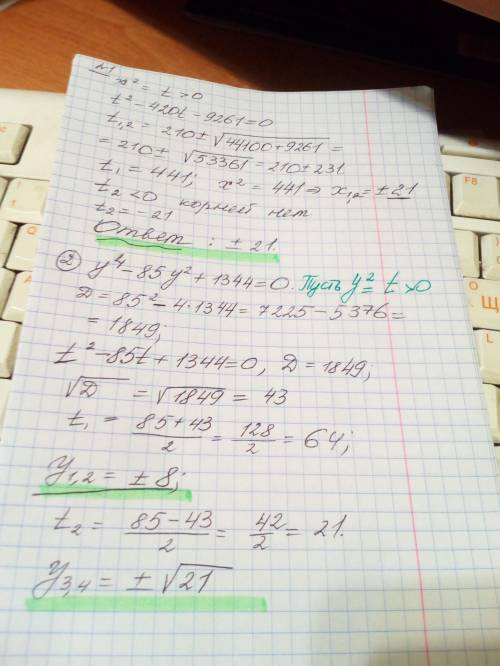 №1
x² = t > 0
t² - 420t - 9261 = 0
t₁,₂ = 210 ± √44100+9261 =
= 210 ± √53361 = 210 ± 231
t₁ = 441; x² = 441 ⇒ x₁,₂ = ± 21
t₂ < 0 корней нет
t₂ = -21
Ответ: ± 21.
② y⁴ - 85y² + 1344 = 0. Пусть y² = t > 0
D = 85² - 4·1344 = 7225 - 5376 =
= 1849;
t² - 85t + 1344 = 0, D = 1849;
√D = √1849 = 43
t₁ = (85+43)/2 = 128/2 = 64;
y₁,₂ = ± 8;
t₂ = (85-43)/2 = 42/2 = 21.
y₃,₄ = ± √21